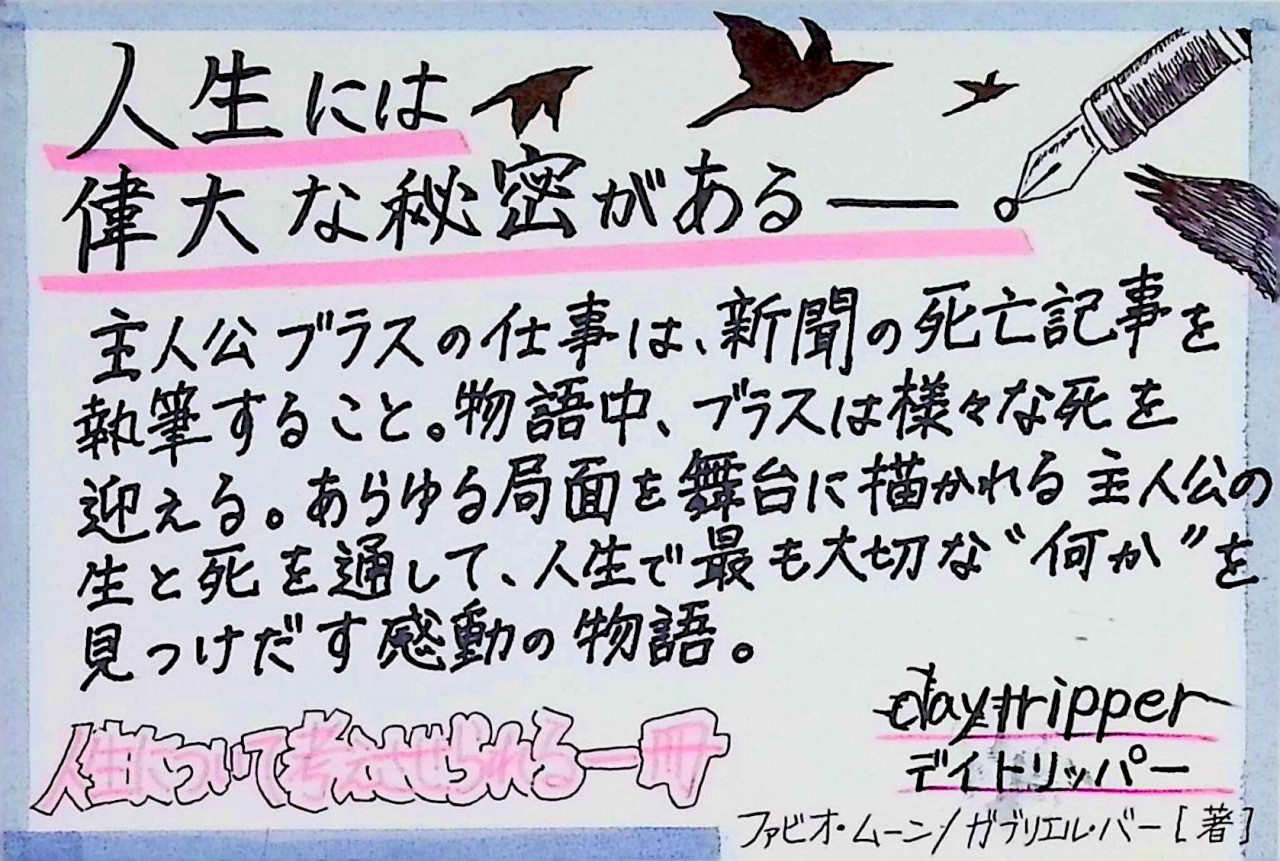 人生には
偉大な秘密がある――。
主人公ブラスの仕事は、新聞の死亡記事を
執筆すること。物語中、ブラスは様々な死を
迎える。あらゆる局面を舞台に描かれる主人公の
生と死を通して、人生で最も大切な“何か”を
見つけだす感動の物語。
人生について考えさせられる一冊
daytripper
デイトリッパー
ファビオ・ムーン/ガブリエル・バー[著]